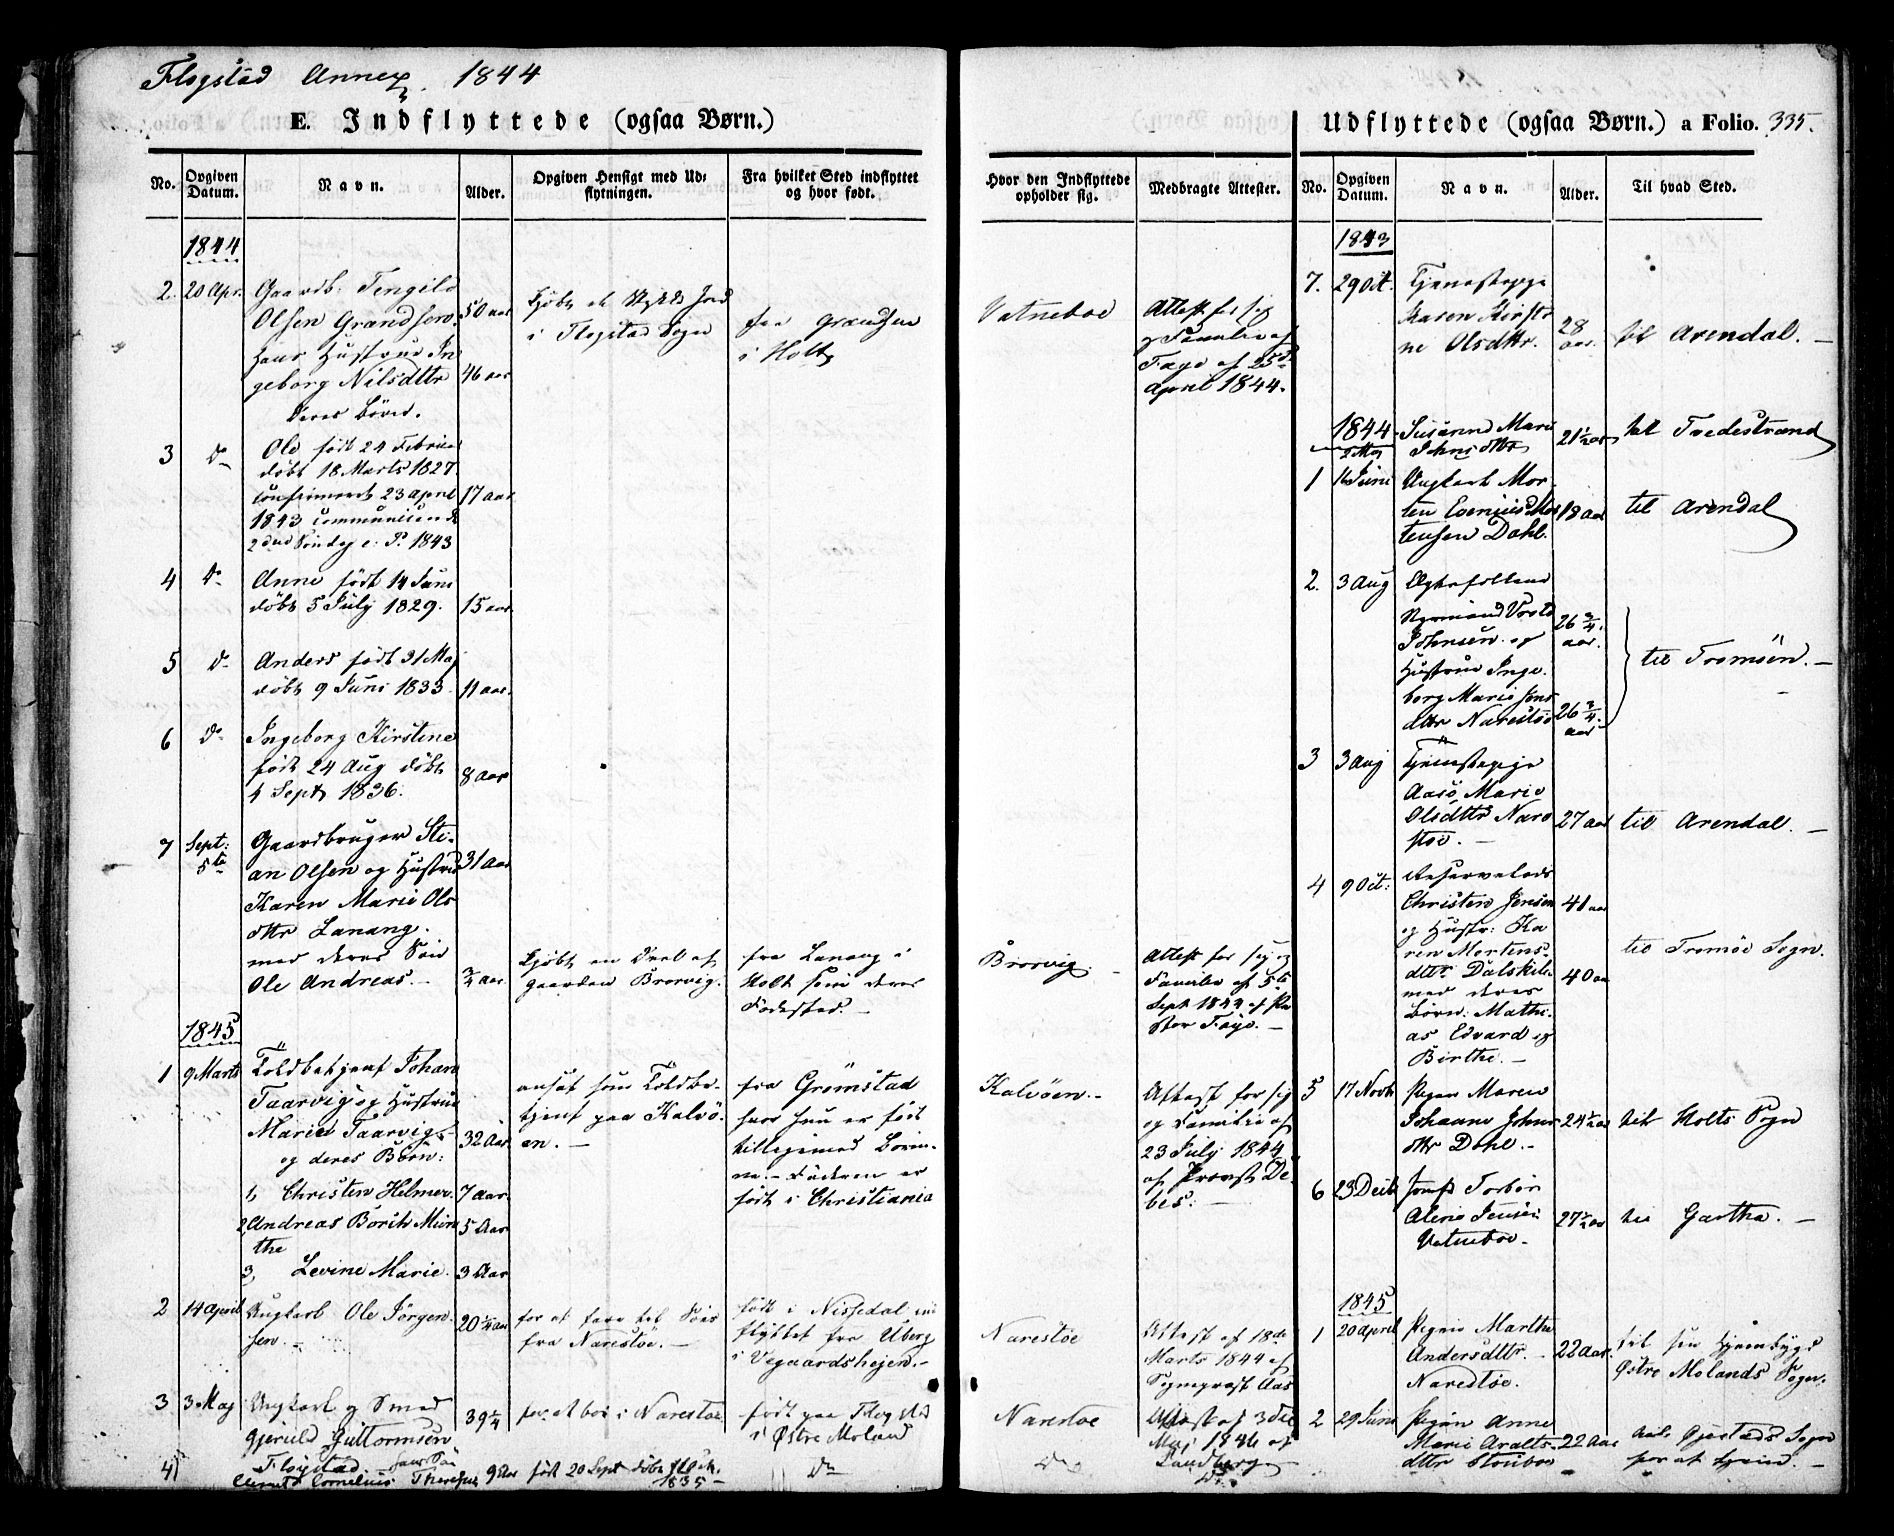 Flogstad Annex. 1844
E. Indflyttede (ogsaa Børn.)
No.
Opgiven Datum.
Navn.
Alder.
Opgiven Hensigt med Udflytningen.
Fra hvilket Sted indflyttet og hvor født.
Hvor den Indflyttede opholder sig.
Medbragte Attester.
1844
2. 20 Apr.
Gaardb: Tengild
Olsen Grændsen
hans Hustrue In
geborg Nilsdttr
deres Børn.
50 aar
46 aar
Kjøbt et Stykke Jord
i Flogstad Sogn
fra Grændsen
i Holt
Vatneboe
Attest for sig
og Familie af
Faye af 25d
April 1844.
3 do
Ole født 24 Februar
døbt 18 Marts 1827
confirmeret 23 April
1843 communicered
2den Søndag e. P. 1843
17 aar
4 do
Anne født 14 Juni
døbt 5 July 1829.
15 aar
5 do
Anders født 31 Maj
døbt 9 Juni 1833.
11 aar.
6 do
Ingeborg Kirstine
født 24 Aug døbt
4 Sept 1836.
8 aar
7 Sept: 5te
Gaardbruger Sti-
an Olsen og Hustrue
Karen Marie Ols
dttr Lanang.
med deres Søn
Ole Andreas.
31 Aar
3/4 aar.
Kjøbt en Deel af
gaarden Brorvig.
fra Lanang i
Holt som deres
Fødested.
Brorvig
Attest for sig og
Familie af 5te
Sept 1844 af Pa
stor Faye.
1845
1 9 Marts
Toldbetjent Johan
Taarvig og Hustrue
Marie Taarvig
og deres Børn:
1, Christen Helmer.
2 Andreas Borith Mun
the
3, Levine Marie.
32 Aar.
7 aar.
5 Aar
3 Aar
ansat som Toldbe-
tjent paa Kalvö-
en.
fra Grömstad
hvor hun er født
tilligemed Børne-
ne. Faderen er
født i Christiania
Kalvöen.
Attest for sig
og Familie af
23 July 1844
af Provst De-
bes:
2 14 April
Ungkarl Ole Jörgen-
sen.
20 1/4 aar
for at fare til Søes
fra Narestöe.
født i Nissedal ind
flyttet fra Uberg
i Vegaardshejen.
Narestöe
Attest af 18de
Marts 1844 af
Sogneprest Aas
3 3 Maj
Ungkarl og Smed
Gjeruld Guttormsen
Flogstad
39 1/4
for at boe i Narestöe
født paa Flogstad
i Østre Moland
Narestoe
Attest af 3die
Maj 1846 af
Lundberg
4)
hans Søn
Cornelius
9 Aar født 20 Sept døbt 11 Oct.
1835
do
do
do
Udflyttede (ogsaa Børn.) a Folio. 335.
No.
Opgiven Datum.
Navn.
Alder.
Til hvad Sted.
1843
7. 29 Oct.
Tjenestepige
Karen Kirsti
ne Olsdttr.
28 aar.
til Arendal.
1844
2 Maj
Susanne Marie
Johnsdttr
21 1/2 aar
til Tvedestrand
1 16 Juni
Ungkarl Mor-
ten Evenius Mor
tensen Dahl.
18 aar
til Arendal
2. 3 Aug
Ægtefolkene
Johnsen og
Hustrue Inge-
borg Marie Jens
dttr Narestöe
26 3/4 aar.
26 3/4 aar
til Tromsöen.
3 3 Aug
Tjenestepige
Aase Marie
Olsdttr Nare
stöe.
27 aar
til Arendal.
4 9 Oct:
Reservelods
Christen Jensen
og Hustr: Ka
ren Mortens-
dttr Dalskilen
med deres
Børn: Mathi-
as Edvard og
Birthe.
41 aar
40 aar
til Tromöe Sogn.
5 17 Novbr
Pigen Maren
Johanne Johns
dttr Dahl.
24 1/2 aar
til Holts Sogn
6 23 Decbr
Alerie Jensen
Vatneboe.
27 1/2 aar
til Gartha.
1845
1 20 April
Pigen Marthe
Andersdttr
Narestöe.
22 Aar.
til sin Hjembygd
Østre Molands Sogn.
2 29 Juni
Pigen Anne
Marie Aralts-
dttr Stoeboe
22 Aar
til Gjerstads Sogn
for at tjene.